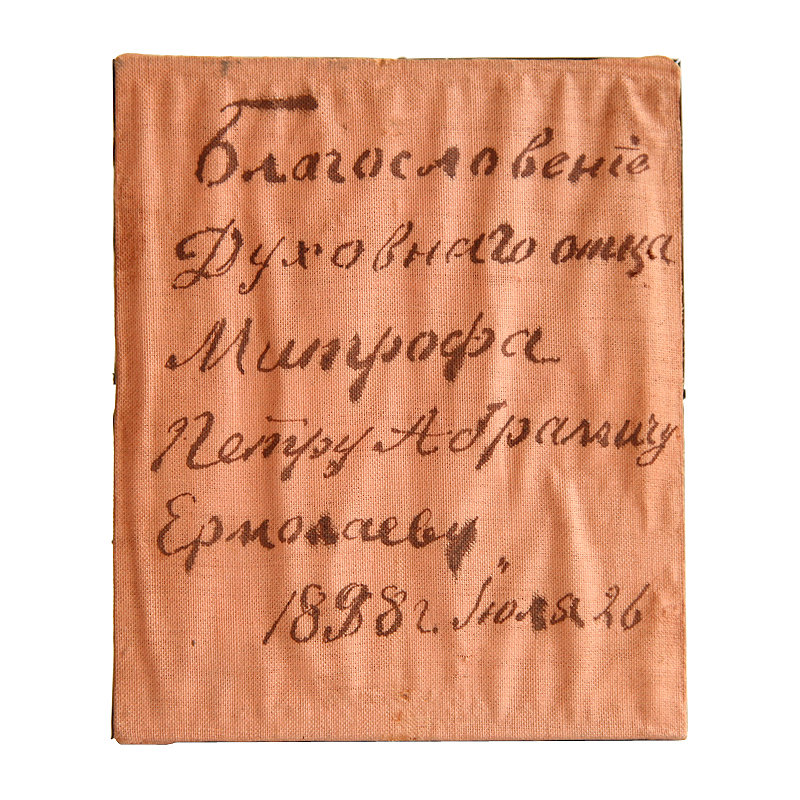 Благословенiе
Духовнаго отца
Митрофа
Петру Абрамичу
Ермолаеву
1898 г. Iюля 26